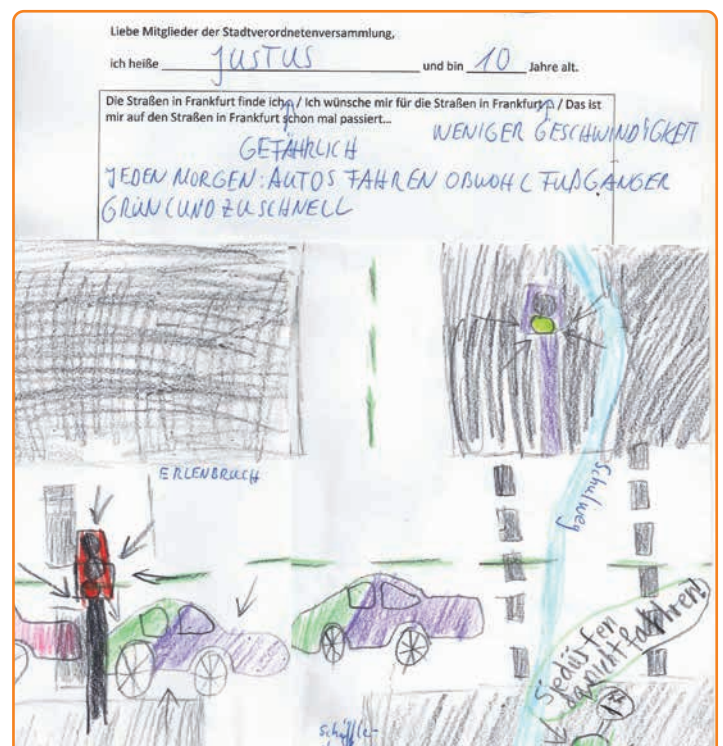 Liebe Mitglieder der Stadtverordnetenversammlung,
ich heiße JUSTUS und bin 10 Jahre alt.
Die Straßen in Frankfurt finde ich / Ich wünsche mir für die Straßen in Frankfurt / Das ist
mir auf den Straßen in Frankfurt schon mal passiert...
WENIGER GESCHWINDIGKEIT
GEFÄHRLICH
JEDEN MORGEN: AUTOS FAHREN OBWOHL FUßGÄNGER
GRÜN (UND ZU SCHNELL
ERLENBRUCH
Schulweg
Sie düsfen
da nicht fahren!
Schäffle-